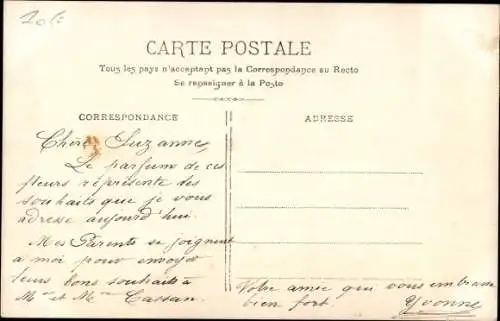 CARTE POSTALE
Tous les pays n'acceptant pas la Correspondance au Recto
Se renseigner à la Poste
CORRESPONDANCE
ADRESSE
Chère Suzanne,
Le parfum de ces
fleurs représente des
souhaits que je vous
adresse aujourd'hui.
Mes Parents se joignent
a moi pour envoyer
leurs bons souhaits à
Mr et Mme Cassan.
Votre amie qui vous embrasse
bien fort.
Yvonne